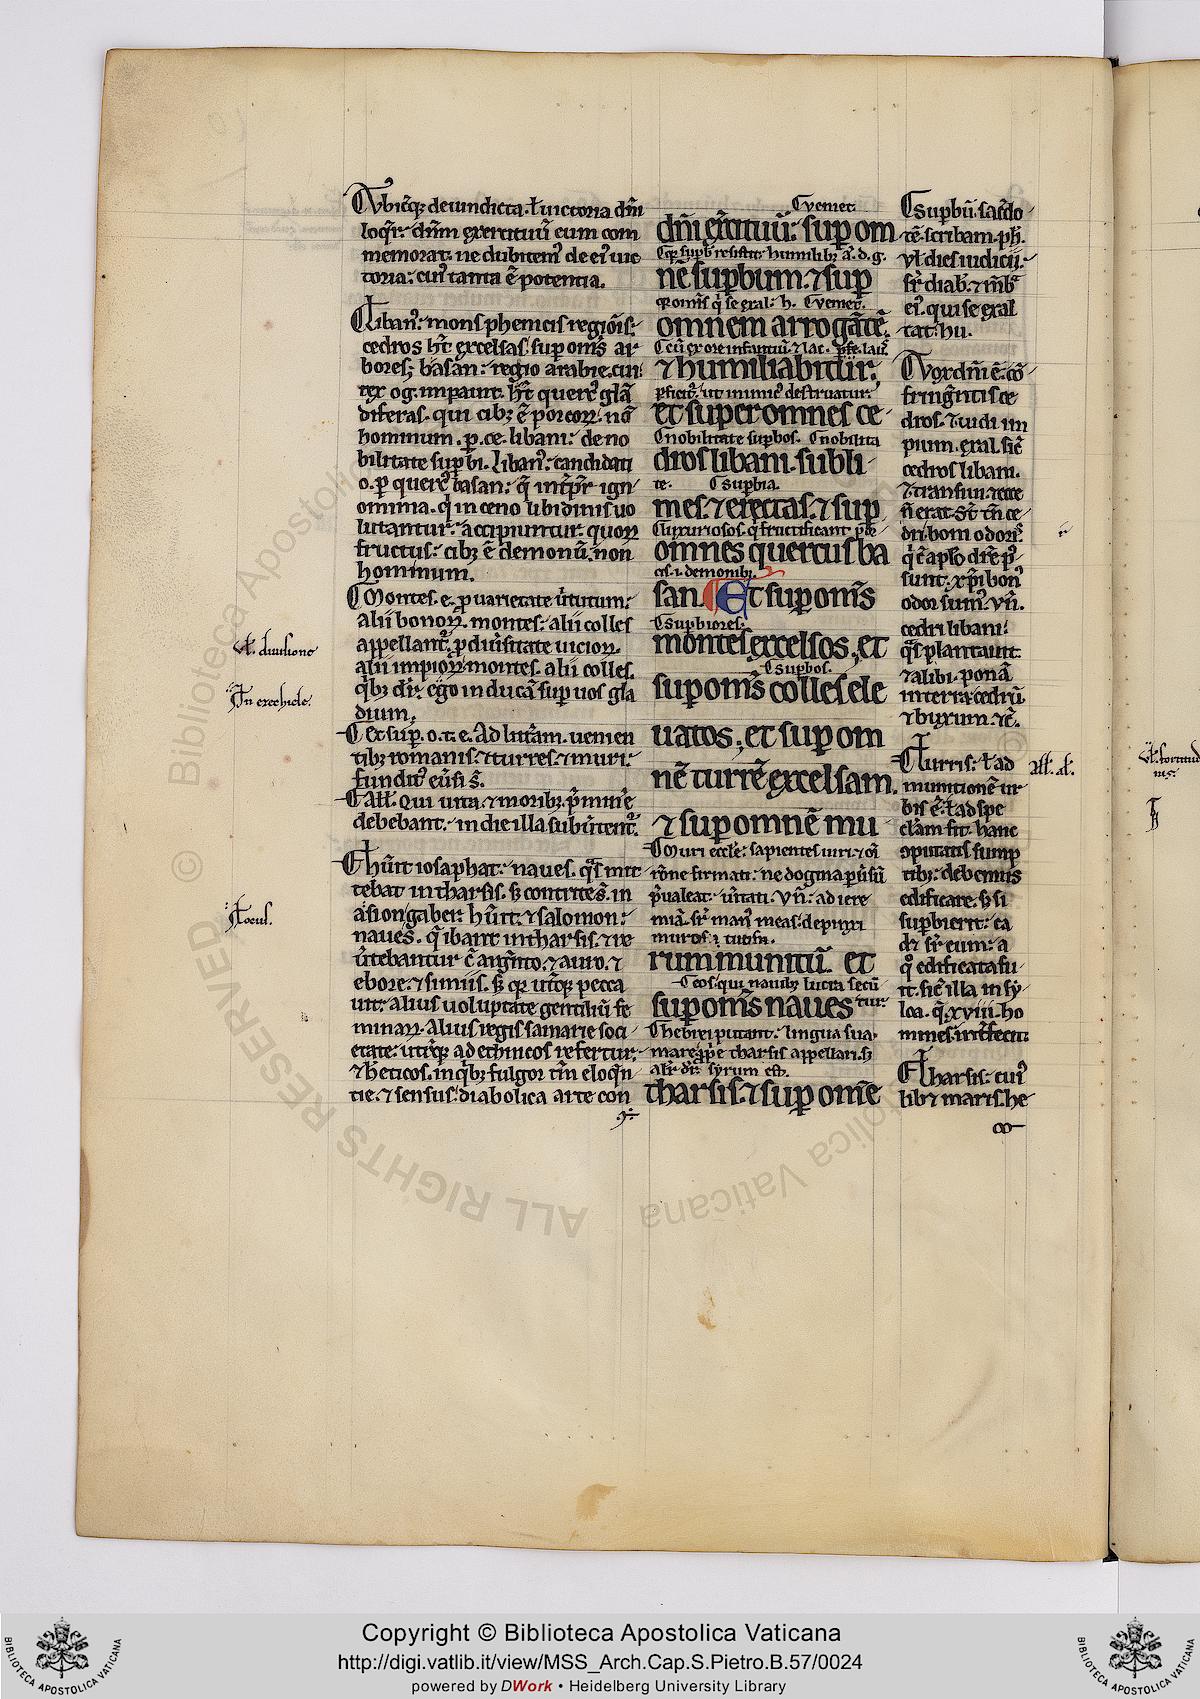 Ubicūq; de iundicta. ł uictoria dn̄i
loqr̄: dn̄m exercituū eum com
memorat. ne dubitem᷒ de ei᷒ uic
toria: cui᷒ tanta ē potentia.
Liban᷒: mons phenicis regiōis:
cedros h̄t excelsas. sup om̄s ar
bores; basan: regio arabie. cui᷒
rex og. impauit. h̄t querc᷒ glā
diferas. qui cib; ē porcoꝝ. nō
hominum. p. ce. libani: de no
bilitate supbi. liban᷒: candidati
o. p querc᷒ basan: q̄ int̄pr̄ ign
ominia. q̄ in ceno libidinis uo
lutantur: accipiuntur. quoꝝ
fructus: cib; ē demonū. non
hominum.
Montes. e. p uarietate ūtutum:
alii bonoꝝ. montes: alii colles
appellant᷒. p diūsitate uicioꝝ.
alii impioꝝ montes. alii colles.
q̄b; dr̄: ego inducā sup uos gla
dium.
Et sup. o. t. e. Ad litt̄am. uenien
tib; romanis: ⁊ turres ⁊ muri:
fundit᷒ eūsi s̄.
Alł. Qui uita ⁊ morib; p̄mine
debebant: in die illa subūtent᷒.
Ħūit iosaphat: naues. q̄s mit
tebat in tharsis. s; contrite s̄. in
asiongaber: h̄uit: ⁊ salomon:
naues. q̄ ibant in tharsis. ⁊ re
ūtebantur c̄ arḡnto. ⁊ auro. ⁊
ebore. ⁊ simiis. s; qr̄ utq; pecca
uit: alius uoluptate gentiliū fe
minaꝝ. alius regis samarie soci
etate: utq; ad ethnicos refertur:
⁊ h̄eticos. in q̄b; fulgor tm̄ eloq̄n
tie. ⁊ sensus: diabolica arte con
uł. diuisione
In ezechiele.
Iocus.
Vemet
dn̄i exc̄ituū: sup om
Qr̄ supb᷒ resistit: humilib; a. d. g.
nē supbum. ⁊ sup
qr̄ omīs q̄ se exal: h. Vemet.
omnem arrogātē.
Cū ex ore infantiū. ⁊ lac. pfe. lau᷒.
⁊ humiliabitur;
pficit: ut inimic᷒ destruatur:
et super omnes ce
nobilitate supbos. nobilita
dros libani. subli
te. supbia.
mes. ⁊ erectas. ⁊ sup
luxuriosos. q̄ fructificant. por
omnes quercus ba
cis. i. demonib;
san. Et sup om̄s
supbiores.
montes excelsos, et
supbos.
sup om̄s colles ele
uatos, et sup om
nē turrē excelsam.
⁊ sup omnē mu
Muri eccl̄e: sapientes uiri. ⁊ or̄
rōne firmati: ne dogma pūsū
p̄ualeat ūitati. Vn̄: ad iere
miā. sr̄ man᷒ meas: depinxi
muros. i. tutisū.
rum munitū. et
eos. qui nauib; lucra sectā
tur.
sup om̄s naues
hebrei putant: lingua sua:
mare pp̄e tharsis appellari. s;
ali᷒ dr̄: syrum est.
tharsis. ⁊ sup omē
Supbū. sacdo
tē. scribam. ph̄.
uł dies iudicii:
sr̄ diab. ⁊ mb̄ᵃ
ei᷒. qui se exal
tat: hu.
Vox dn̄i. ē. cō
fringn̄tis ce
dros. ⁊ uidi im
pium. exal. sic̄
cedros libani.
⁊ transiui. ⁊ ecce
n̄ erat. St̄ tn̄ ce
dri boni odoris:
q̄ c̄ aplo dre p᷒
sunt. xp̄i bon᷒
odor sum᷒. vn̄.
cedri libani:
q̄s plantauit.
⁊ alibi. ponā
in terra: cedrū
⁊ buxum. ⁊c̄.
Turris: ł ad
munitionē ur
bis ē. ł ad spe
clam fit. hanc
oputatis sump
tib;: debemus
edificare. s; si
supbierit: ea
dr̄ sr̄ eum: a
q̄ edificata fu
it. sic̄ illa in sy
loa. q̄. xviii. ho
mines int̄fecit.
Tharsis: cui᷒
lib; maris. he
ał. al.
Copyright © Biblioteca Apostolica Vaticana
http://digi.vatlib.it/view/MSS_Arch.Cap.S.Pietro.B.57/0024
powered by DWork • Heidelberg University Library
BIBLIOTECA APOSTOLICA VATICANA
BIBLIOTECA APOSTOLICA VATICANA
© Biblioteca Apostolica Vaticana
ALL RIGHTS RESERVED